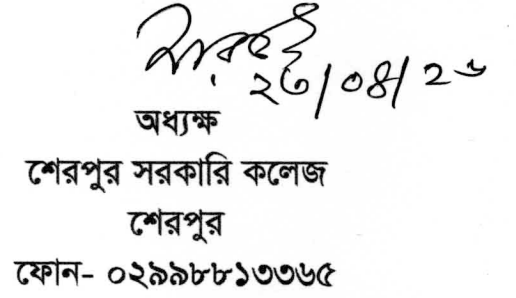 ২৩/০৪/২৬
অধ্যক্ষ
শেরপুর সরকারি কলেজ
শেরপুর
ফোন- ০২৯৯৮৮১৩৩৬৫